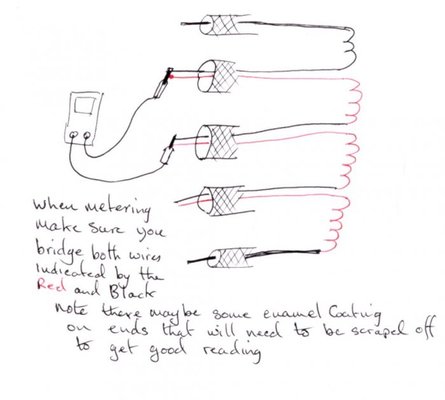 When metering
make sure you
bridge both wires
Indicated by the
Red and Black
Note there maybe some enamel Coating
on ends that will need to be scraped off
to get good reading